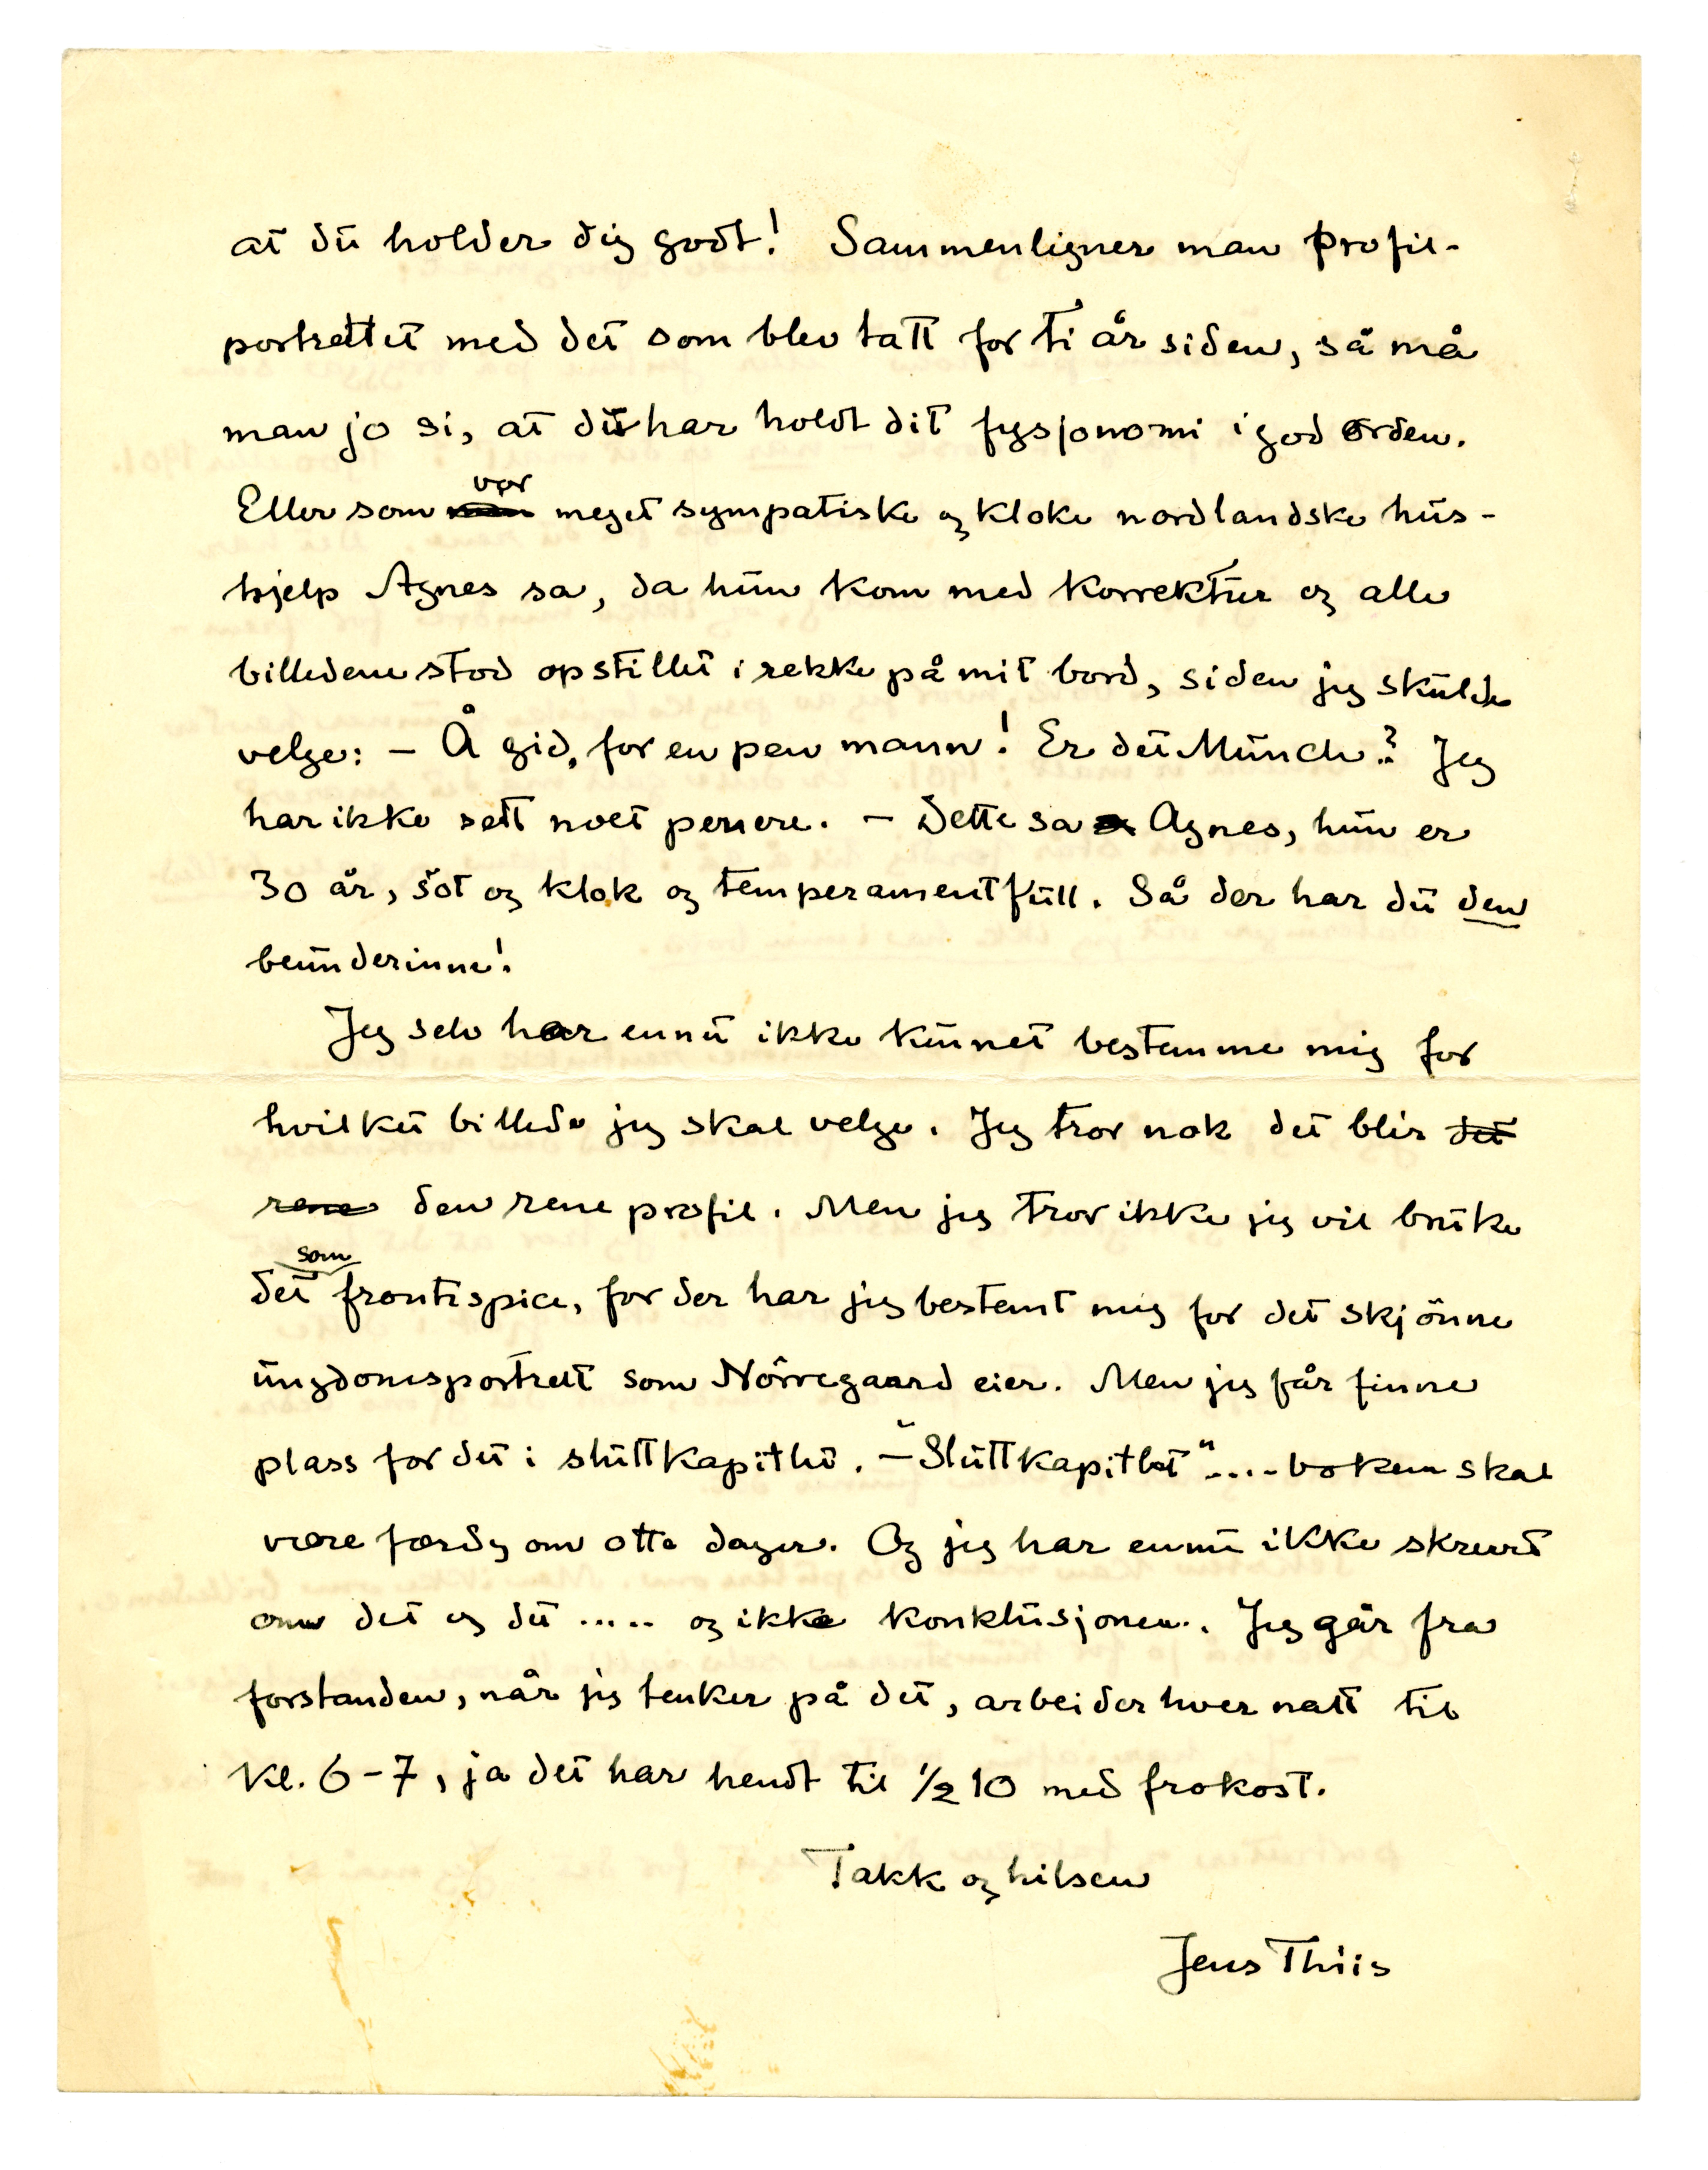 at du holder dig godt! Sammenligner man profil-
portrettet med det som blev tatt for ti år siden, så må
man jo si, at du har holdt dit fysjonomi i god orden.
Eller som vor meget sympatiske og kloke nordlandske hus-
hjelp Agnes sa, da hun kom med korrektur og alle
billedene stod opstillet i rekke på mit bord, siden jeg skulde
velge: – Å gid, for en pen mann! Er det Munch? Jeg
har ikke sett noet penere. – Dette sa Agnes, hun er
30 år, söt og klok og temperamentfull. Så der har du den
beunderinne!
Jeg selv har ennu ikke kunnet bestemme mig for
hvilket billede jeg skal velge. Jeg tror nok det blir det
rene den rene profil. Men jeg tror ikke jeg vil bruke
det som frontispice, for der har jeg bestemt mig for det skjönne
ungdomsportrett som Nörregaard eier. Men jeg får finne
plass for det i sluttkapitlet. – "Sluttkapitlet" .... boken skal
være færdig om otte dager. Og jeg har ennu ikke skrevet
om det og det ..... og ikke konklusjonen. Jeg går fra
forstanden, når jeg tenker på det, arbeider hver natt til
kl. 6–7, ja det har hendt til ½ 10 med frokost.
Takk og hilsen
Jens Thiis